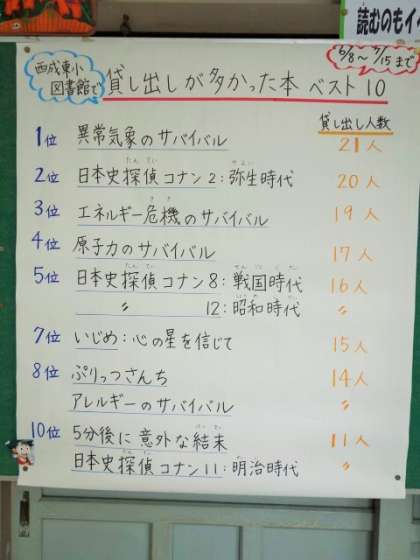 読むのもイ
6/8〜7/15まで
西成東小
図書館で
貸し出しが多かった本 ベスト10
貸し出し人数
1位 異常気象のサバイバル 21人
たんてい やよい
2位 日本史探偵コナン2:弥生時代 20人
きき
3位 エネルギー危機のサバイバル 19人
4位 原子力のサバイバル 17人
たんてい せんごくじだい
5位 日本史探偵コナン8:戦国時代 16人
〃 12:昭和時代 〃
7位 いじめ:心の星を信じて 15人
8位 ぷりっつさんち 14人
アレルギーのサバイバル 〃
けつまつ
10位 5分後に意外な結末 11人
日本史探偵コナン11:明治時代 〃